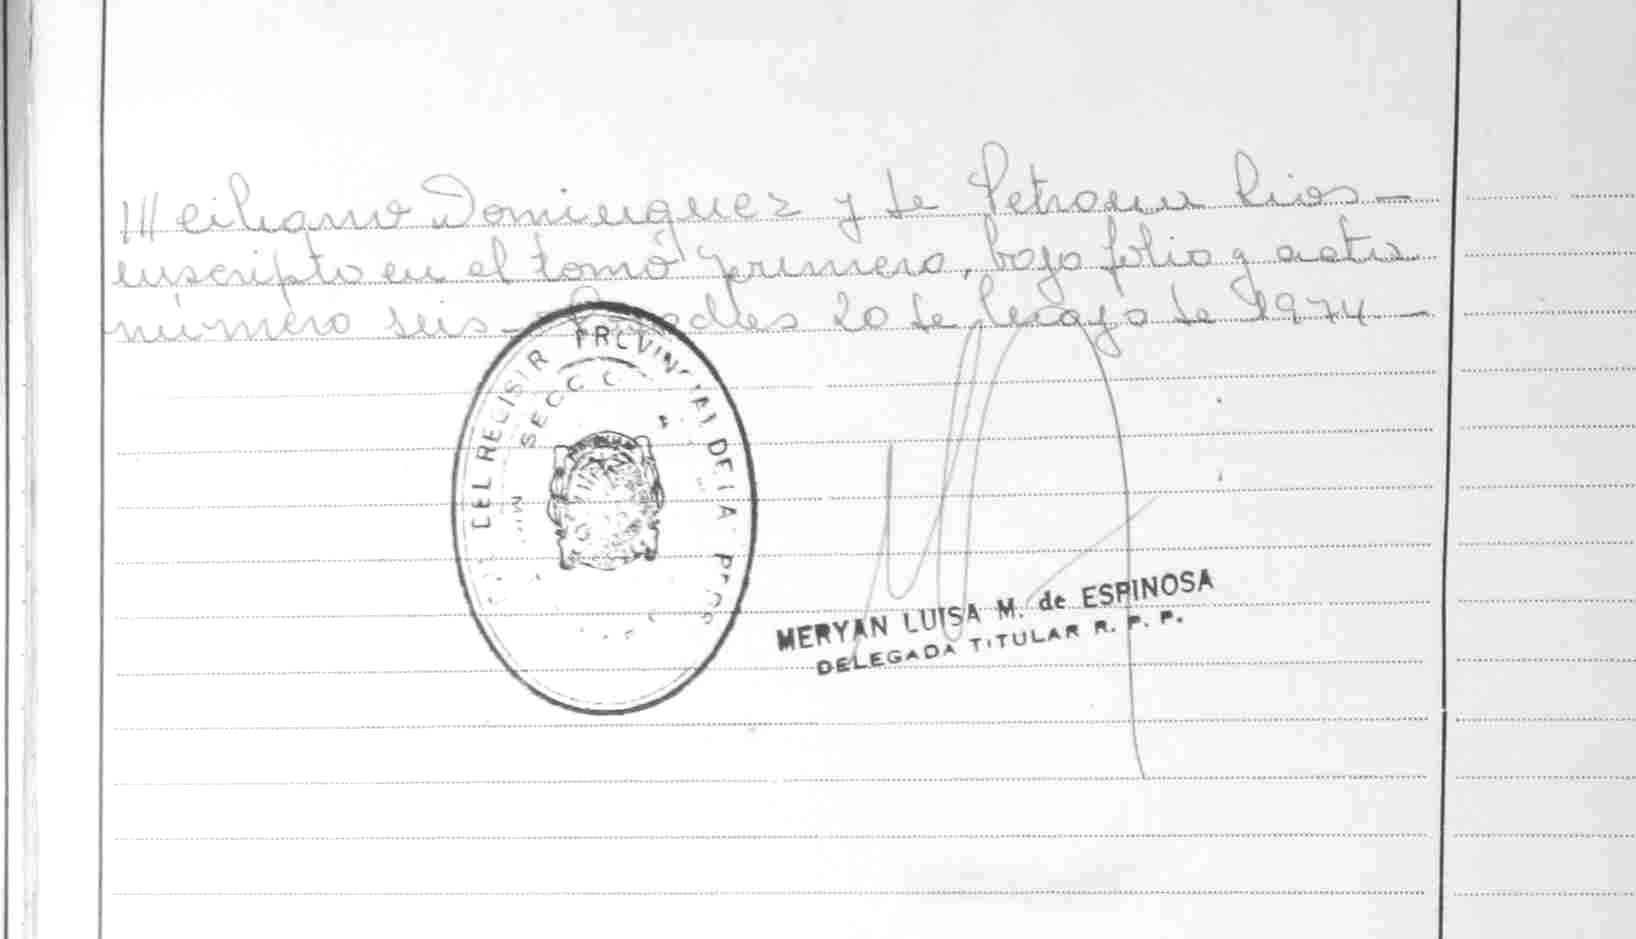 /// ciliano Dominguez y de Petrona Rios —
inscripto en el tomo primero, bajo folio y acta
número seis — 20 de Mayo de 1974 —
DEL REGISTR PROVINCIAL DE LA
SECC
MERYAN LUISA M. de ESPINOSA
DELEGADA TITULAR R. P. P.